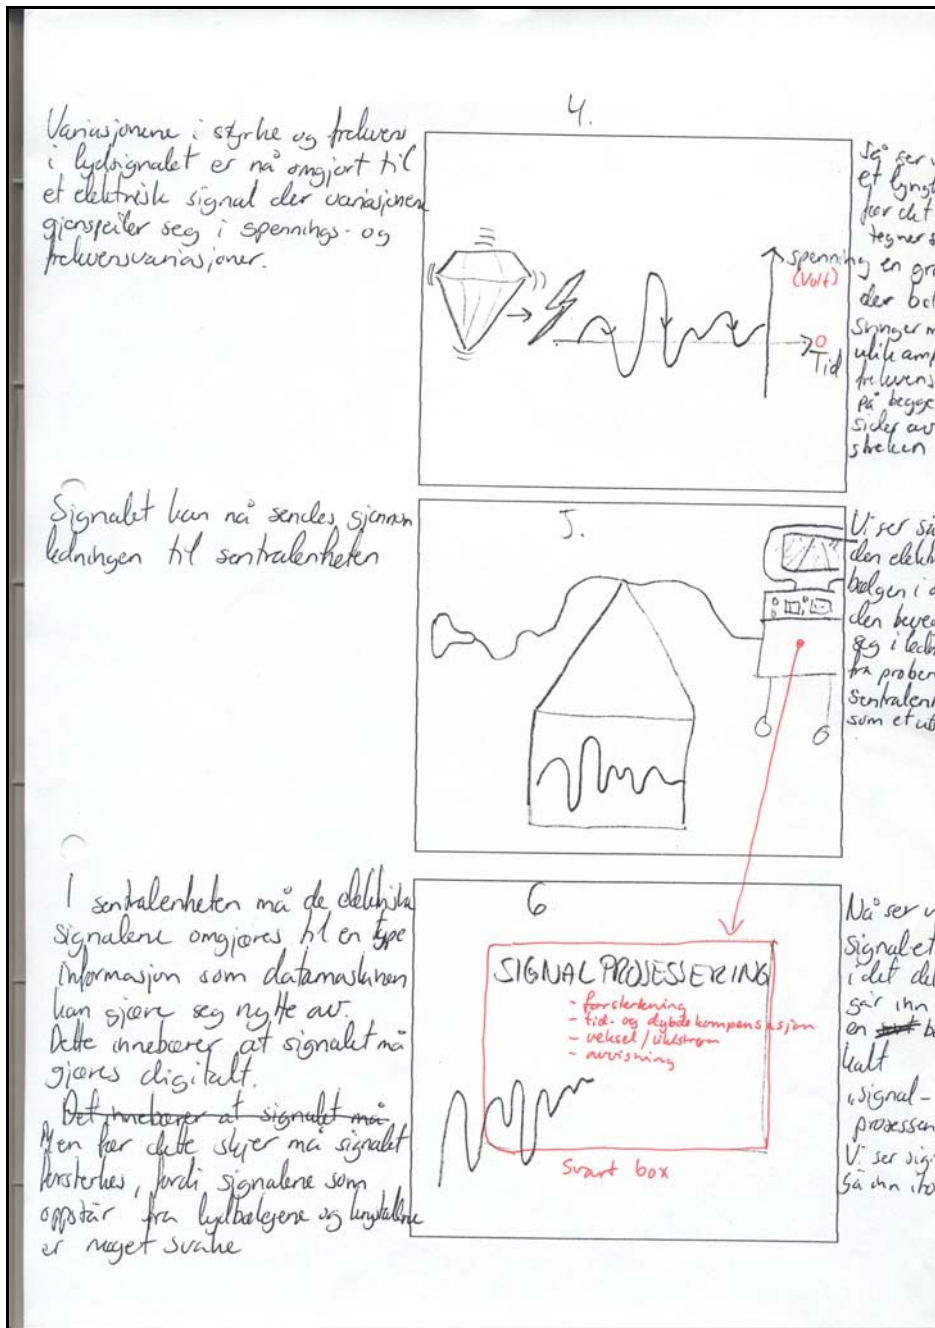 4.
Variasjonene i styrke og frekvens
i lydsignalet er nå omgjort til
et elektrisk signal der variasjonene
gjenspeiler seg i spennings- og
frekvensvariasjoner.
spenning
(Volt)
0
Tid
Så ser v
et lyng
før det
tegner s
en gra
der
svinger m
ulik amp
frekvens
på begge
sider av
streken
5.
Signalet kan nå sendes gjennom
ledningen til sentralenheten
Vi ser
den elekt
bølgen i
den beve
seg i ledn
fra proben
sentralen
som et
6
I sentralenheten må de elektriske
signalene omgjøres til en type
informasjon som datamaskinen
kan gjøre seg nytte av.
Dette innebærer at signalet må
gjøres digitalt.
Det innebærer at signalet må
Men før dette skjer må signalet
forsterkes, fordi signalene som
oppstår fra lydbølgene og krystallene
er meget svake
SIGNALPROSESSERING
- forsterkning
- tid- og dybdekompensasjon
- veksel / likestrøm
- avvisning
Svart box
Nå ser v
signalet
i det det
går inn
en
kalt
"signal-
prosesser
Vi ser sig
gå inn i